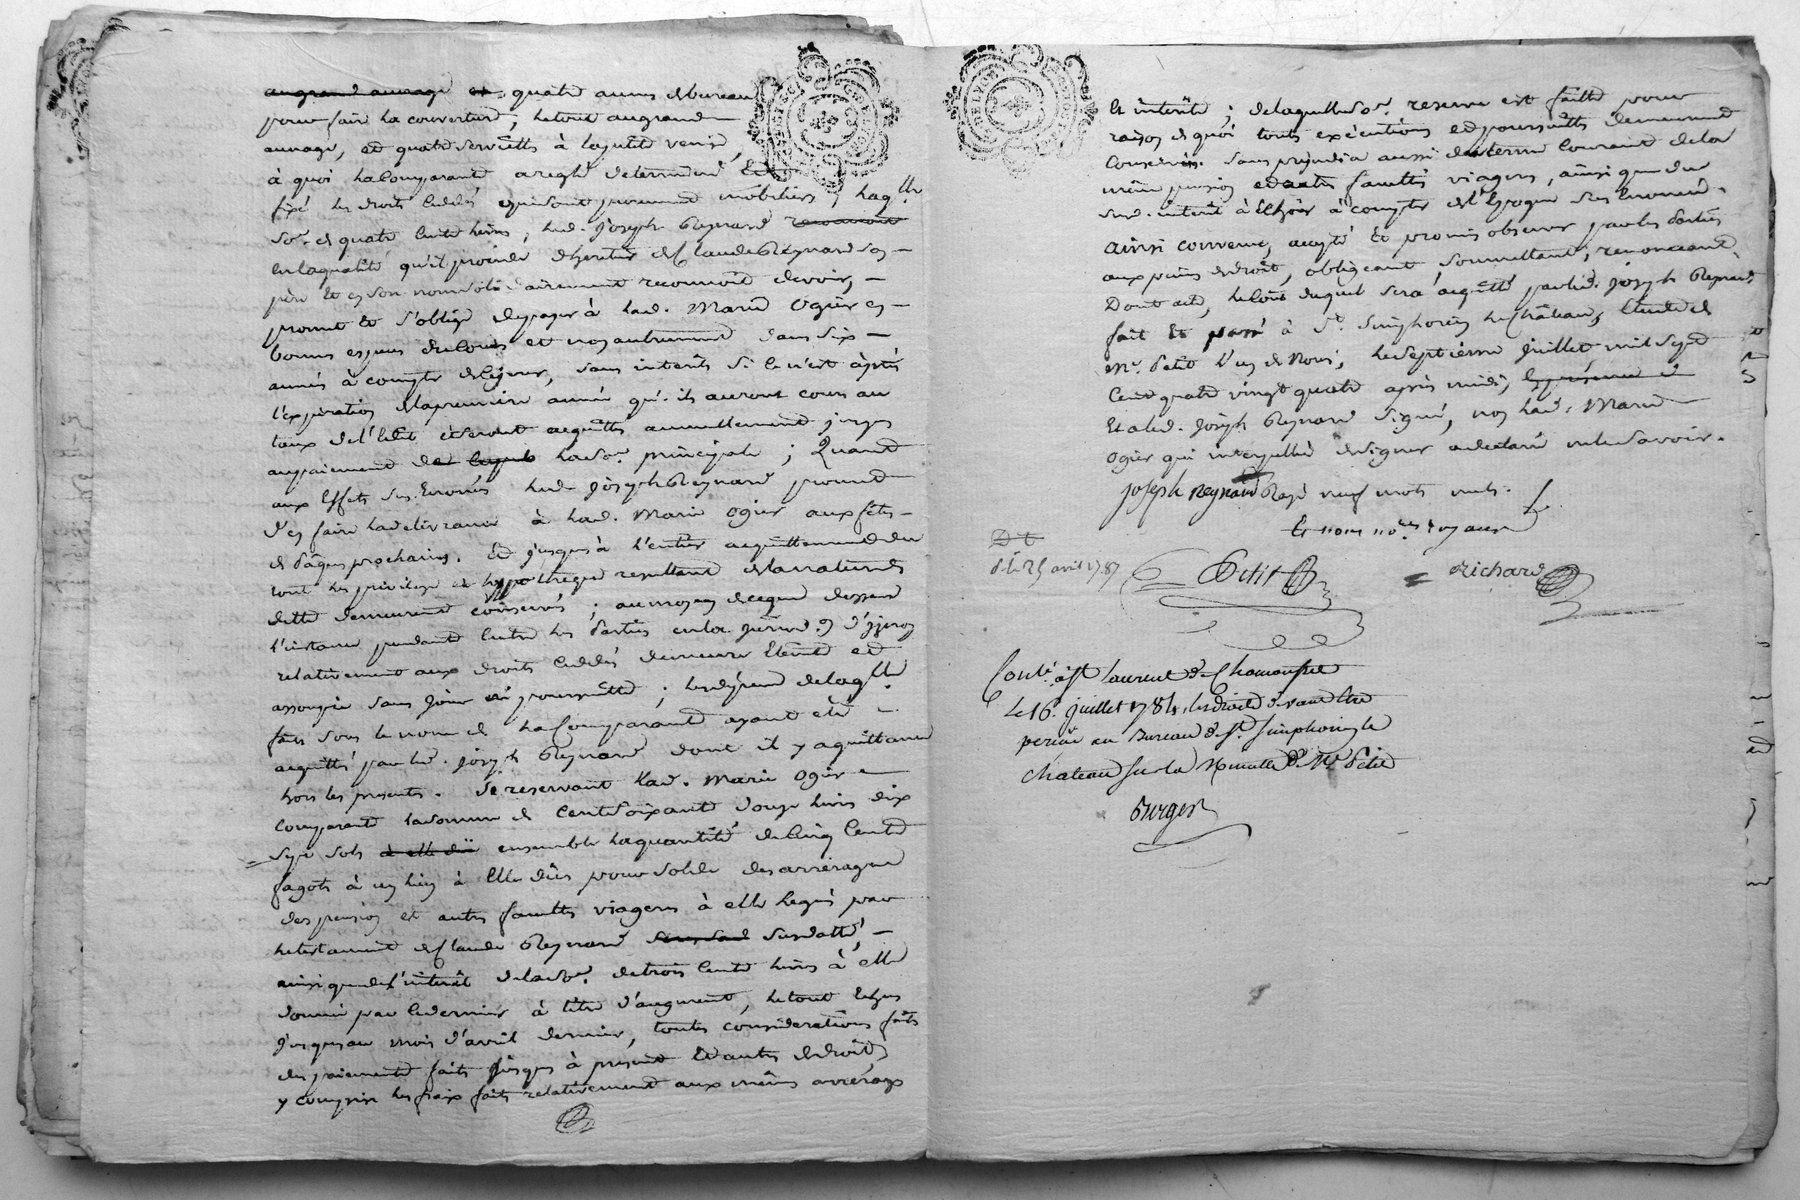 au grand aunage et quatre aunes de bureau
pour faire la couverture, le tout au grand
aunage, et quatre serviettes à la petite venise,
à quoi la comparante a reglé determiné et
fixé les droits cedés qui sont purement mobiliers ; laq.lle
so.e de quatre cents livres, led. Joseph Reynard
en la qualité qu'il procede d'heritier de Claude Reynard son
père et en son nom solidairement reconnoit devoir,
promet et s'oblige de payer à lad. Marie Ogier en
bonnes especes de cours et non autrement dans six
années à compter de ce jour, sans interêts si ce n'est après
l'expiration de la premiere année qu'ils auront cours au
taux de l'édit et seront acquittés annuellement jusques
au paiement de la so.e principale ; Quant
aux effets sus énoncés led. Joseph Reynard promet
d'en faire la delivrance à lad. Marie Ogier aux fêtes
de Pâques prochaines. Et jusques à l'entier acquittement du
tout les privileges et hypotheque resultant de la nature de
dette demeurent conservés ; au moyen de ce que dessus
l'instance pendante entre les parties en la
relativement aux droits cedés demeure éteinte et
assoupie sans jour ni poursuitte ; les depens de laq.lle
faits sous le nom de la comparante ayant été
acquittés par led. Joseph Reynard dont il y a quittance
hors les presentes. Se reservant lad. Marie Ogier
comparante la somme de cent soixante douze livres dix
sept sols à elle düe ensemble la quantité de cinq cents
fagots à elle dûs pour solde des arrérages
des pension et autres facultés viageres à elle legués par
le testament de Claude Reynard susdatté,
ainsi que de l'interêt de la so.e de trois cents livres à elle
donnée par ce dernier à titre d'augment, le tout échus
jusques au mois d'avril dernier, toutes considerations faites
des paiements faits jusques à present et autres de droit,
y compris les fraix faits relativement aux mêmes arrérages
et interêts ; de laquelle so.e reserve est faitte pour
raison de quoi touts exécutions et poursuittes demeurent
conservés. Sans prejudice aussi du terme courant de la
même pension et autres facultés viageres, ainsi que du
sud. interêt à échoir à compter de l'époque sus énoncée.
Ainsi convenu, accepté et promis observer par les parties
aux peines de droit, obligeant, soumettant, renonceant,
Dont acte, le coût duquel sera acquitté par led. Joseph Reynard
fait et passé à St. Simphorien le Château, étude de
M.e Petit l'un de Nous, le septième Juillet mil sept
cent quatre vingt quatre après midi,
et a led. Joseph Reynard signé, non lad. Marie
Ogier qui interpellée de signer a declaré ne le savoir.
joseph Reynard Rayé neuf mots nuls.
Et nous no.res royaux
Dt
d. le 25 avril 1787
Petit
Richard
Con.lé à St Laurent de Chamousset
le 16. juillet 1784, les droits devant être
perçus au Bureau de St. Simphorien le
Chateau sur la Minutte de Me Petit
Burget